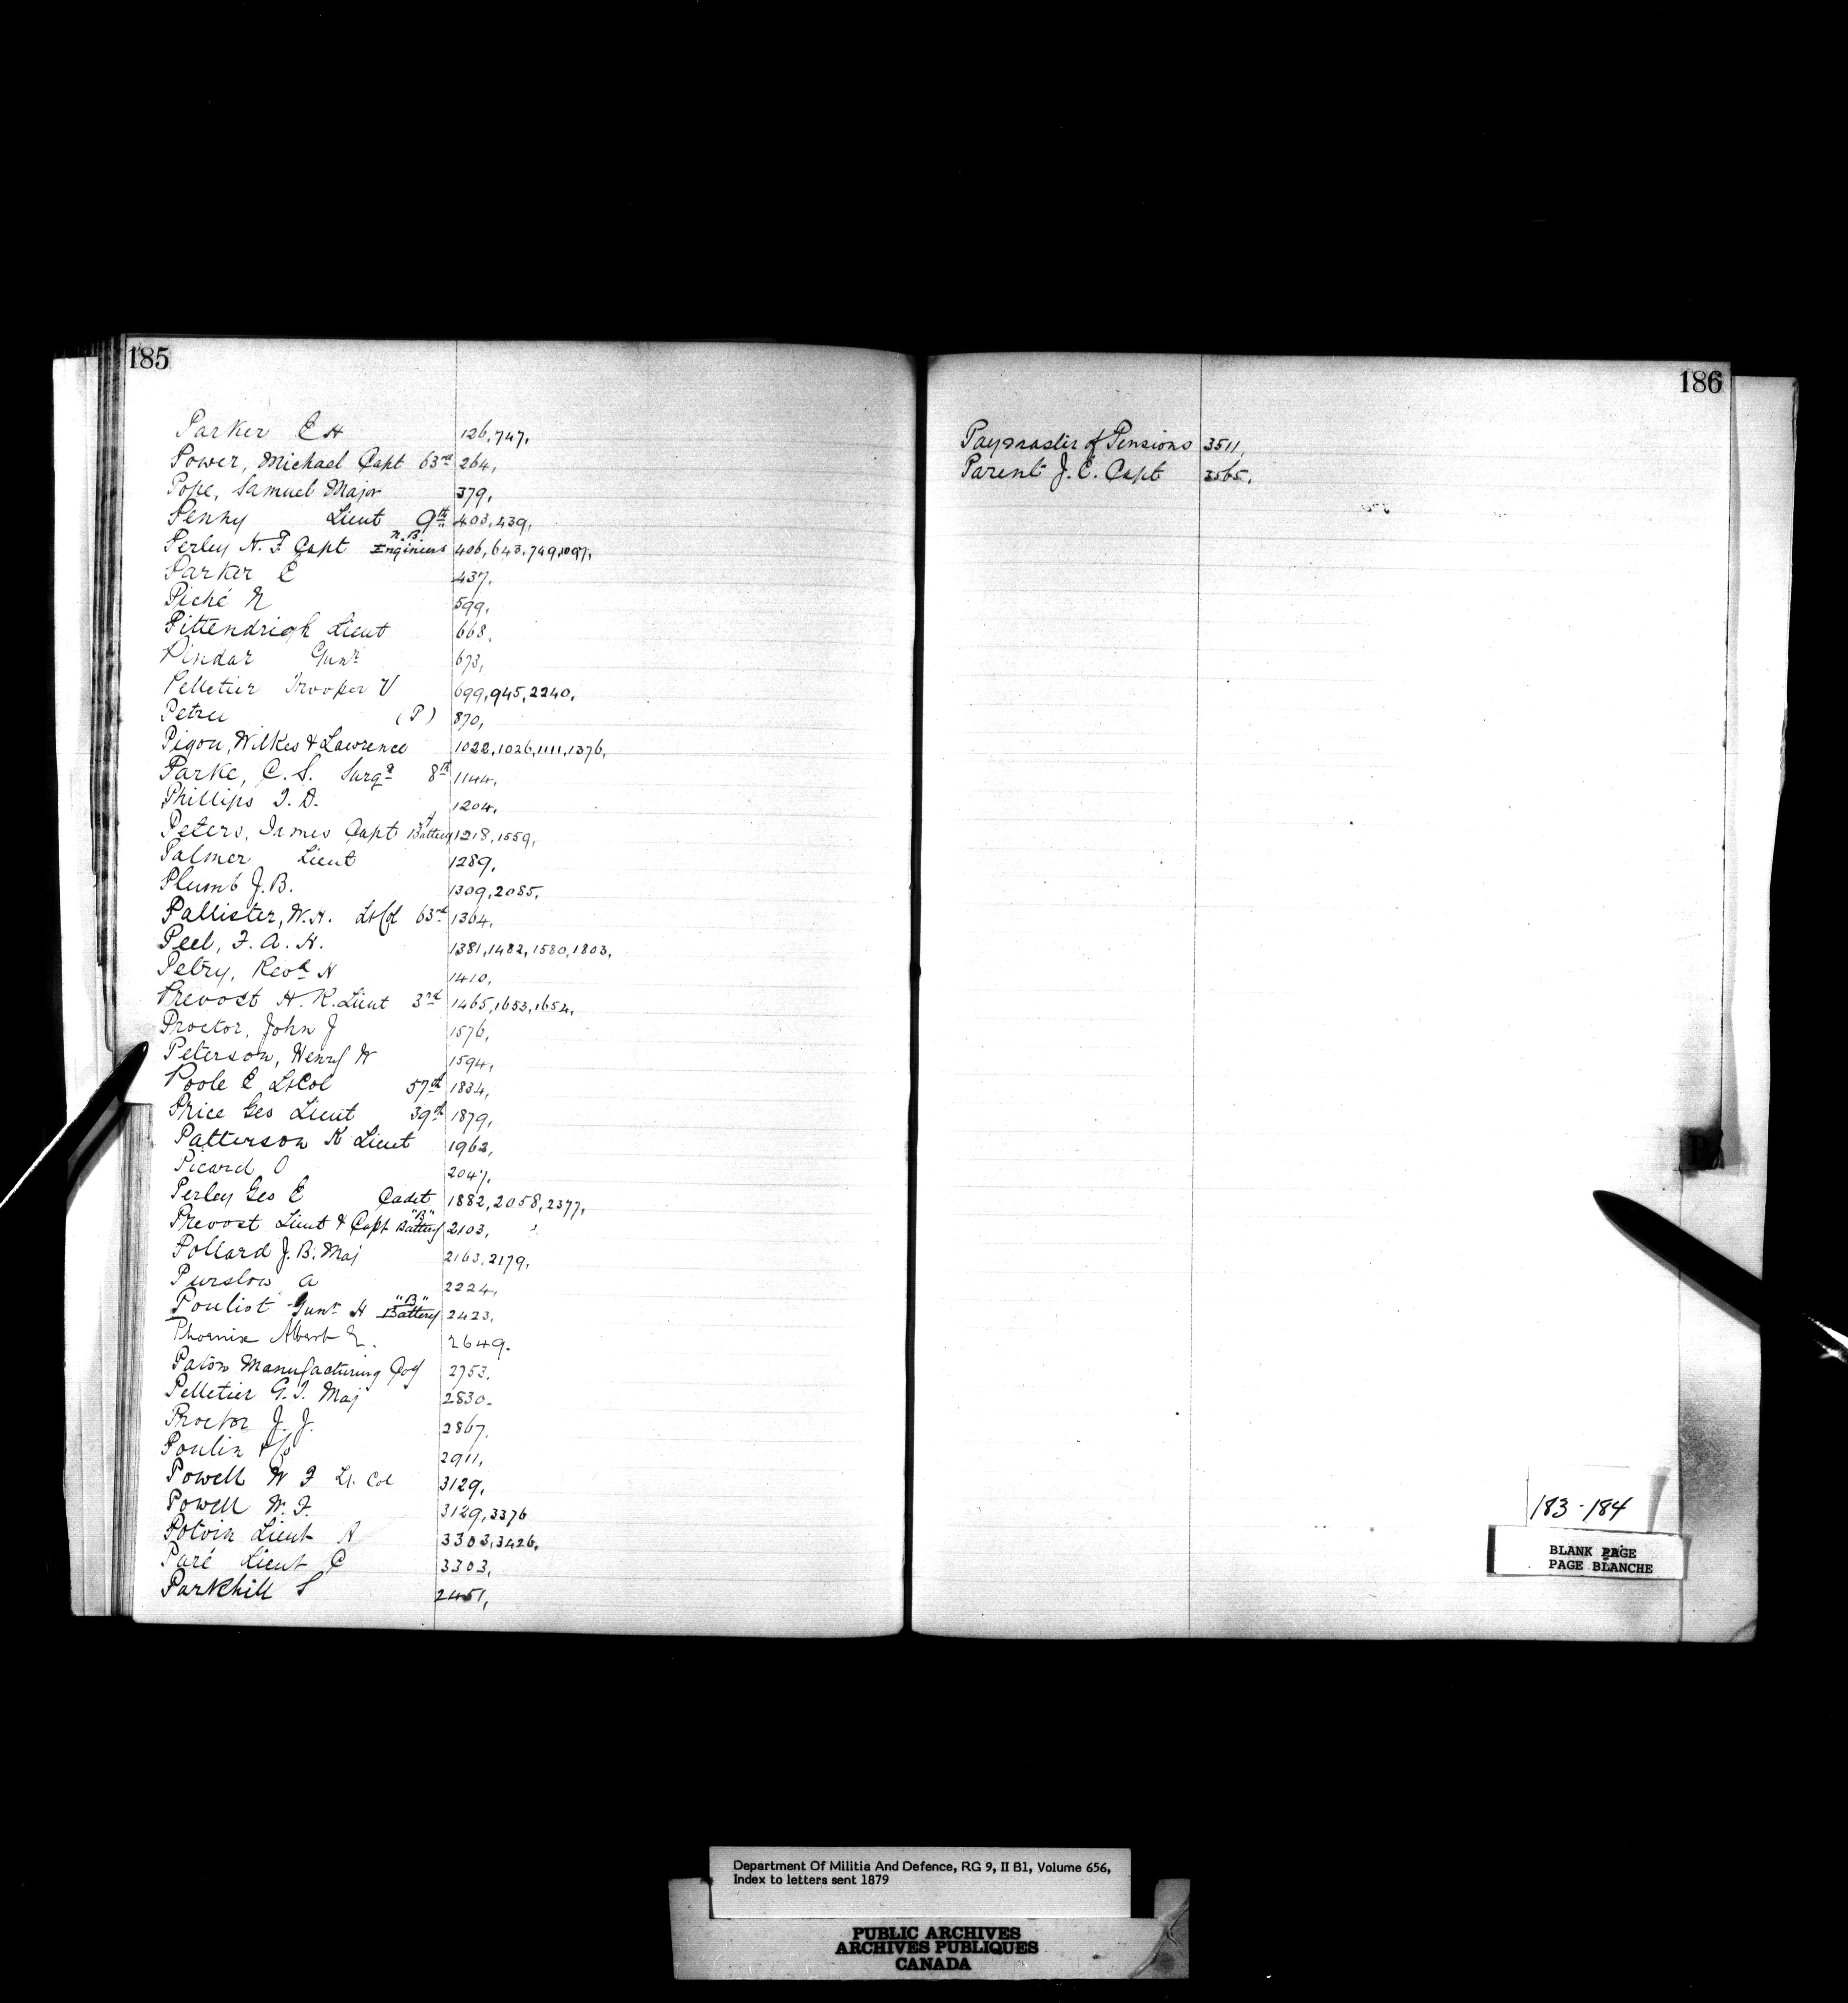 185
Parker E H 126, 747,
Power, Michael Capt 63rd 264,
Pope, Samuel Major 379,
Penny Lieut 9th 403, 439,
Perley H. F Capt N.B. Engineers 406, 643, 749, 1097,
Parker E 437,
Piché N 599,
Pittendrigh Lieut 668,
Pindar Gunr 673,
Pelletier Trooper V 699, 945, 2240,
Petrie (P) 870,
Pigou, Wilkes & Lawrence 1022, 1026, 1111, 1376,
Parke, C. S. Surgn 8th 1144,
Phillips J. D. 1204,
Peters, James Capt "A" Battery 1218, 1559,
Palmer Lieut 1289,
Plumb J. B. 1309, 2085,
Pallister, W. H. Lt Col 63rd 1364,
Peel, F. A. H. 1381, 1482, 1580, 1803,
Petry, Revd H 1410,
Prevost H. K. Lieut 3rd 1465, 1653, 1654,
Proctor, John J 1576,
Peterson, Henry W 1594,
Poole E Lt Col 57th 1834,
Price Geo Lieut 39th 1879,
Patterson K Lieut 1962,
Picard O 2047,
Perley Geo E Cadet 1882, 2058, 2377,
Prevost Lieut & Capt "B" Battery 2103,
Pollard J. B. Maj 2163, 2179,
Purslow A 2224,
Pouliot Gunr H "B" Battery 2423,
Phoenix Albert 2649.
Paton Manufacturing Coy 2753.
Pelletier G. T. Maj 2830.
Proctor J. J. 2867.
Poulin 2911,
Powell W F Lt. Col 3129,
Powell W. F. 3129, 3376
Potvin Lieut A 3303, 3426,
Paré Lieut C 3303,
Parkhill S 2451,
186
Paymaster of Pensions 3511,
Parent J. E. Capt 3565,
P
183-184
BLANK PAGE
PAGE BLANCHE
Department Of Militia And Defence, RG 9, II B1, Volume 656,
Index to letters sent 1879
PUBLIC ARCHIVES
ARCHIVES PUBLIQUES
CANADA